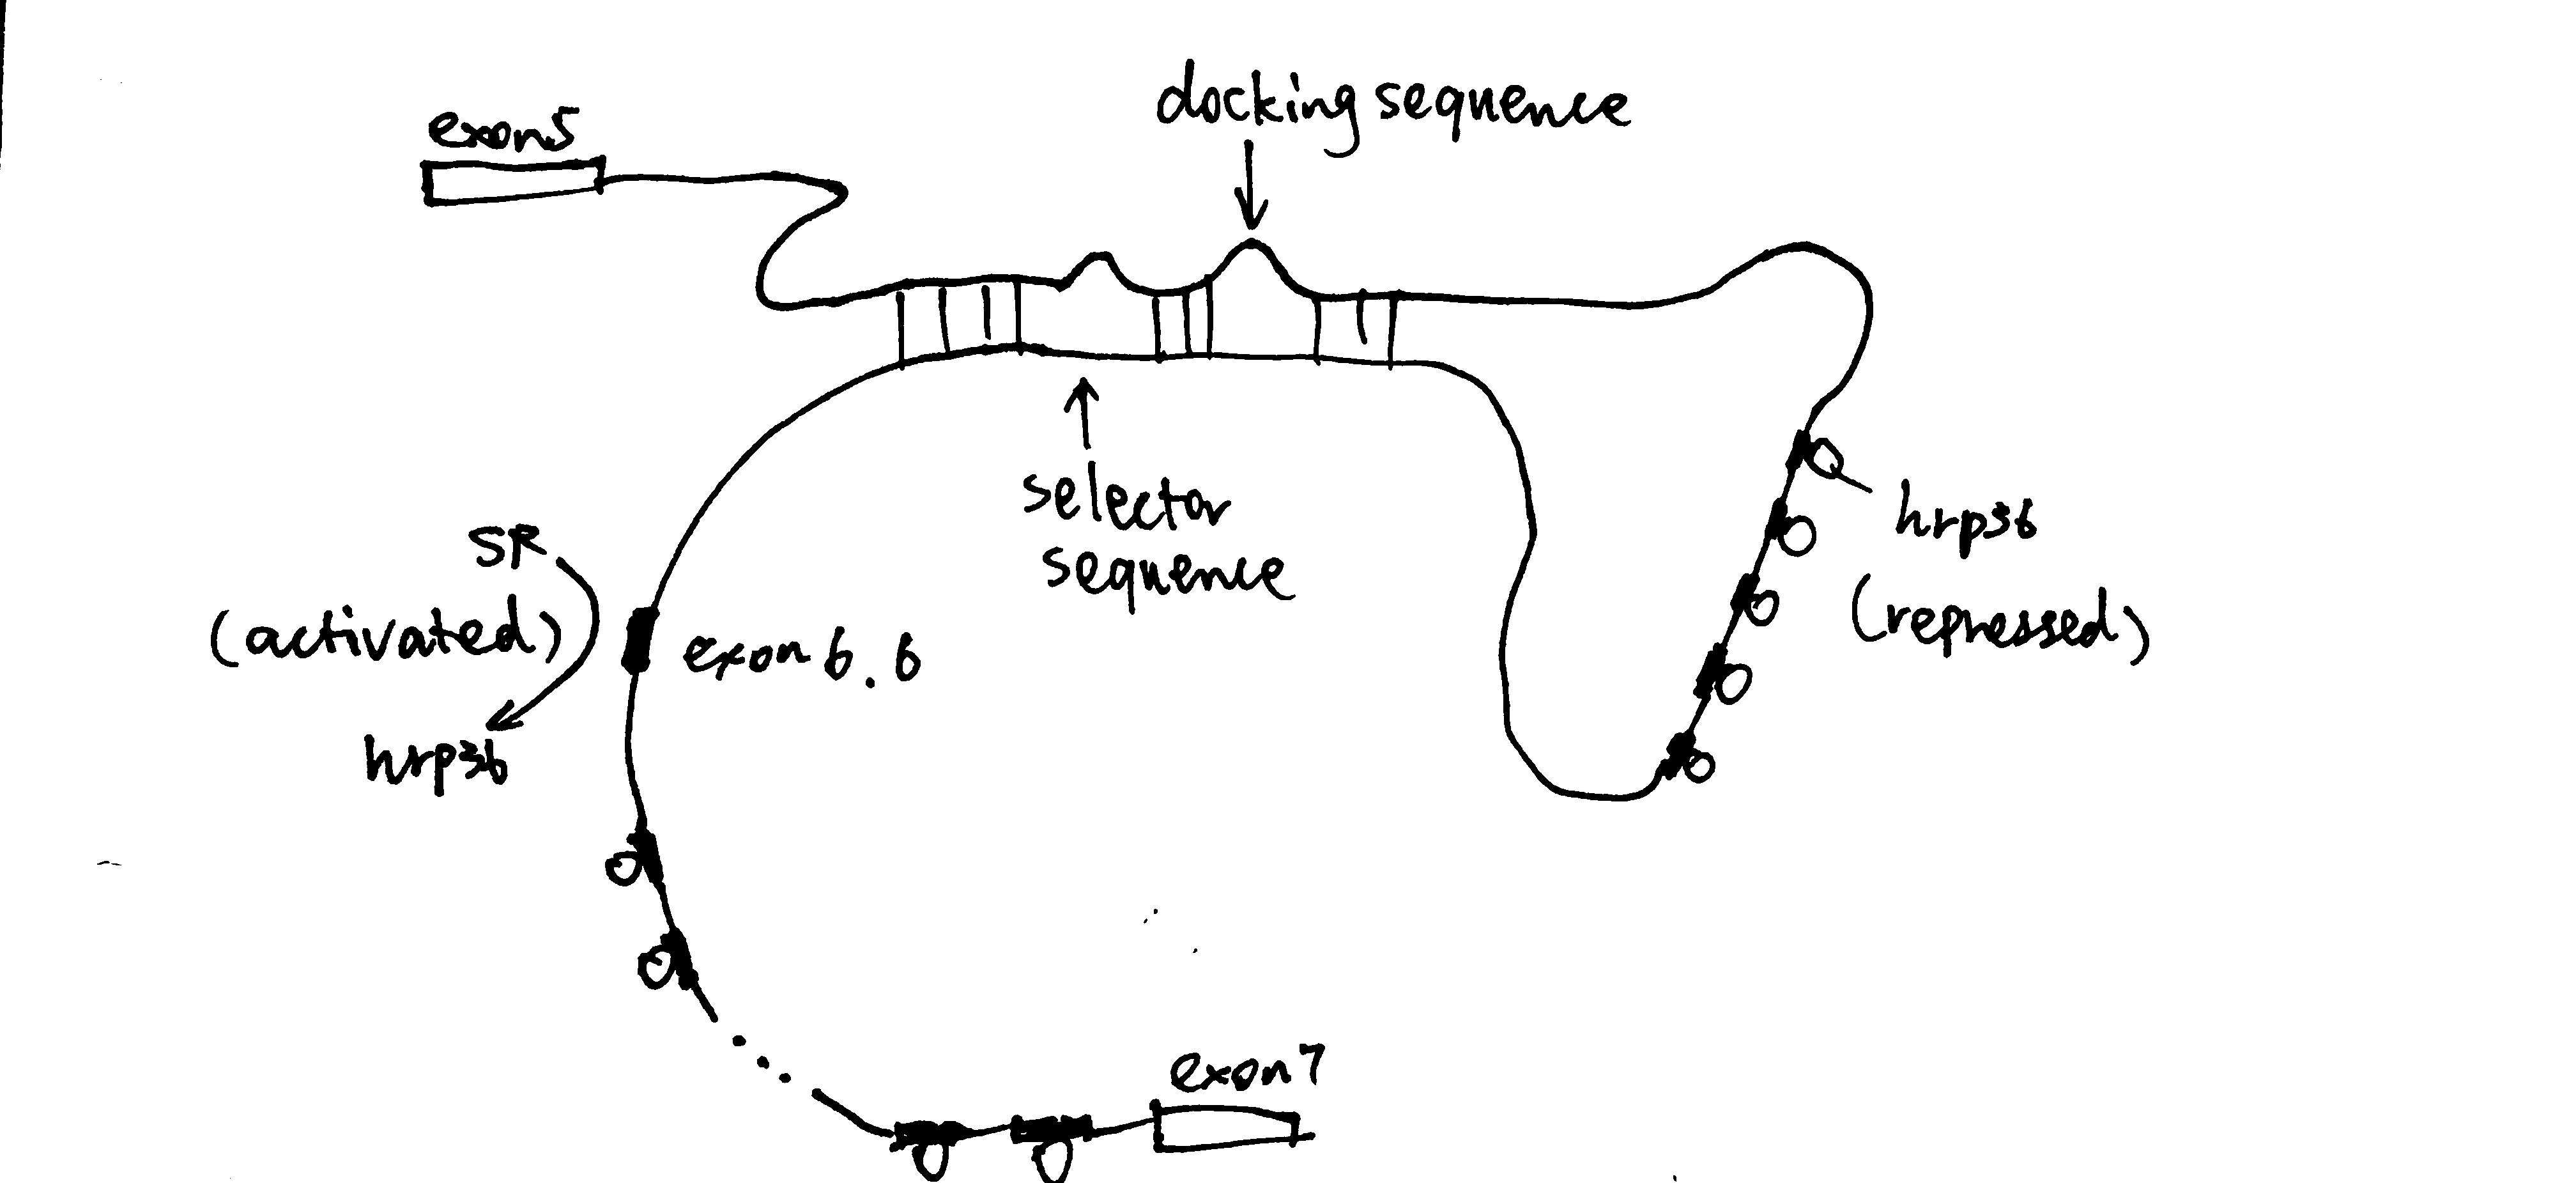 docking sequence
exon5
selector
sequence
hrp36
(repressed)
SR
(activated)
exon 6.6
hrp36
exon7